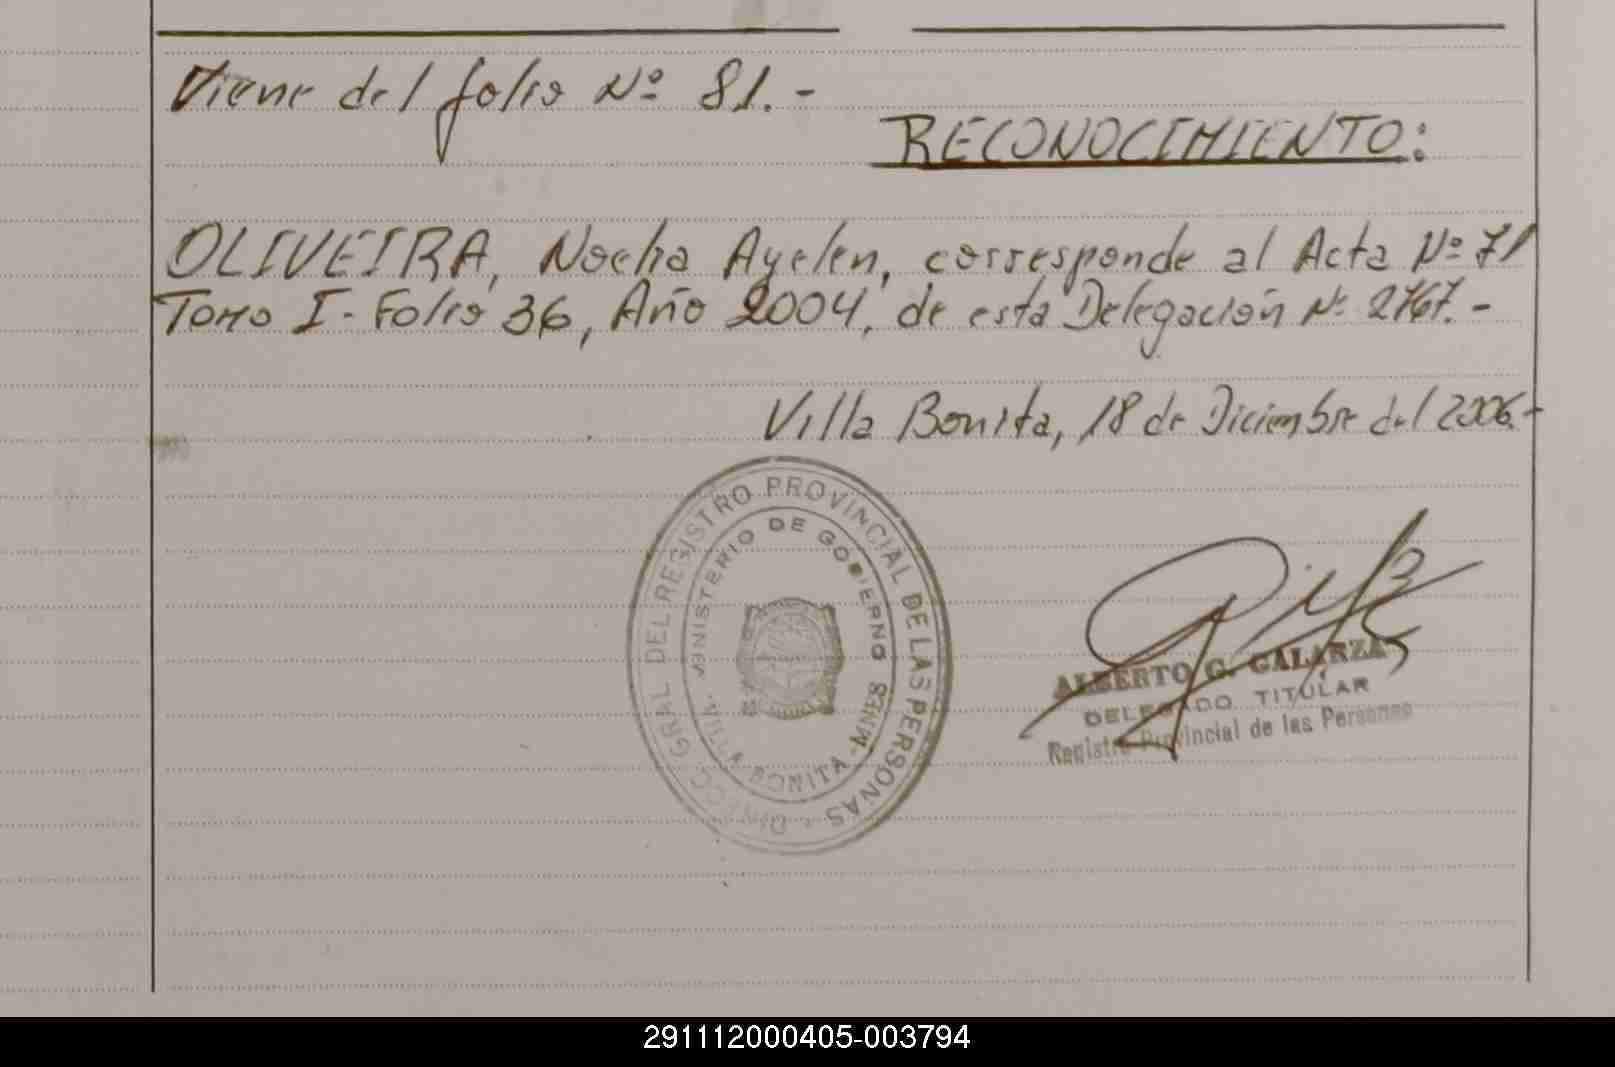 Viene del folio Nº 81.-
RECONOCIMIENTO:
OLIVEIRA, Noelia Ayelen, corresponde al Acta Nº 71
Tomo I - Folio 36, Año 2004, de esta Delegación Nº 2767.-
Villa Bonita, 18 de Diciembre del 2006.-
DIRECC. GRAL DEL REGISTRO PROVINCIAL DE LAS PERSONAS -
MINISTERIO DE GOBIERNO
VILLA BONITA - MNES
ALBERTO G. GALARZA
DELEGADO TITULAR
Registro Provincial de las Personas
291112000405-003794